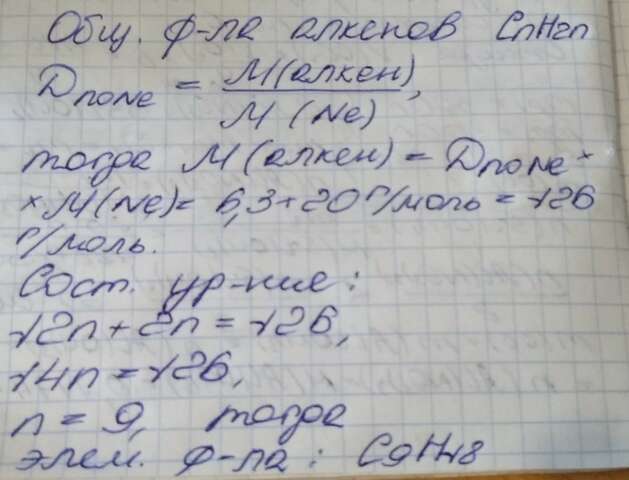 Общ. ф-ла алкенов CnH2n
DпоNe = M(алкен)/M(Ne),
тогда M(алкен) = DпоNe ×
× M(Ne) = 6,3 * 20 г/моль = 126
г/моль.
Сост. ур-ние:
12n + 2n = 126,
14n = 126,
n = 9, тогда
элем. ф-ла: C9H18